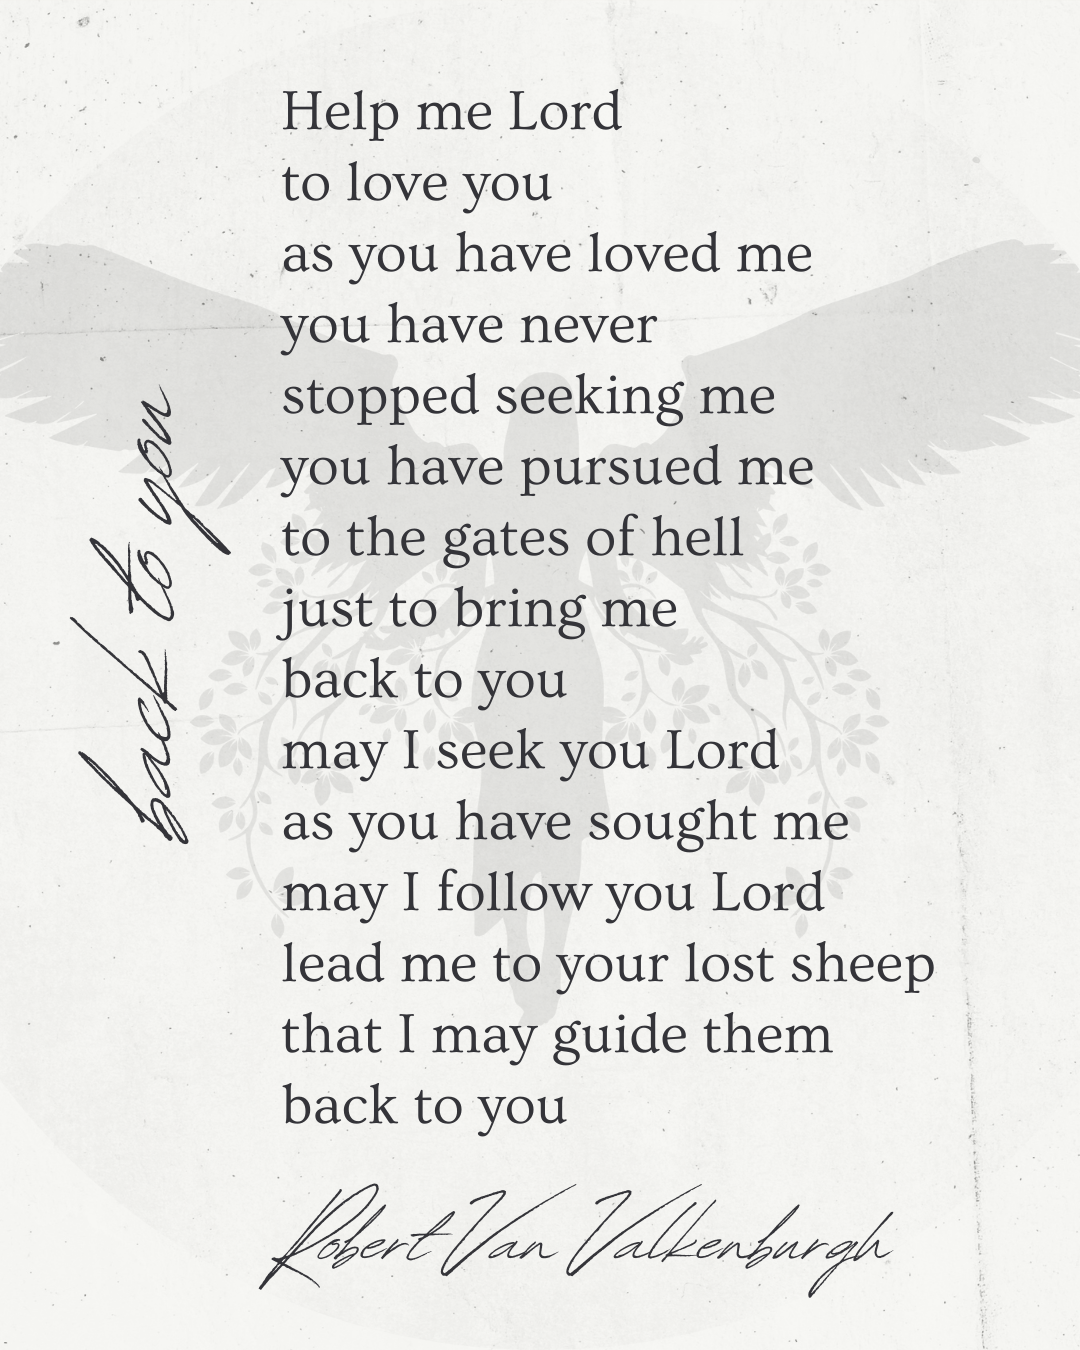 back to you
Help me Lord
to love you
as you have loved me
you have never
stopped seeking me
you have pursued me
to the gates of hell
just to bring me
back to you
may I seek you Lord
as you have sought me
may I follow you Lord
lead me to your lost sheep
that I may guide them
back to you
Robert Van Valkenburgh